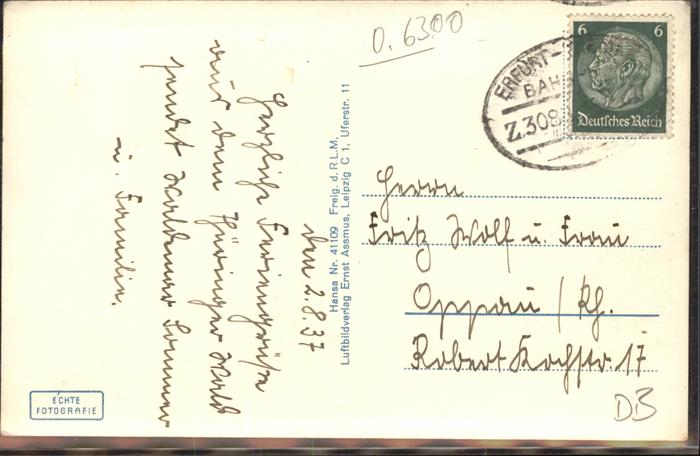 0.6300
6 6
Deutsches Reich
ERFURT-
BAH
Z.308
den 2.8.37
Herzliche Feriengrüße
aus dem Thüringer Wald
sendet Waldemar Sommer
u. Familie.
Hansa Nr. 41109 Freig. d. R.L.M.
Luftbildverlag Ernst Assmus, Leipzig C 1, Uferstr. 11
Herrn
Fritz Wolf u. Frau
Oppau / Rh.
Robert Kochstr. 17
DB
ECHTE
FOTOGRAFIE